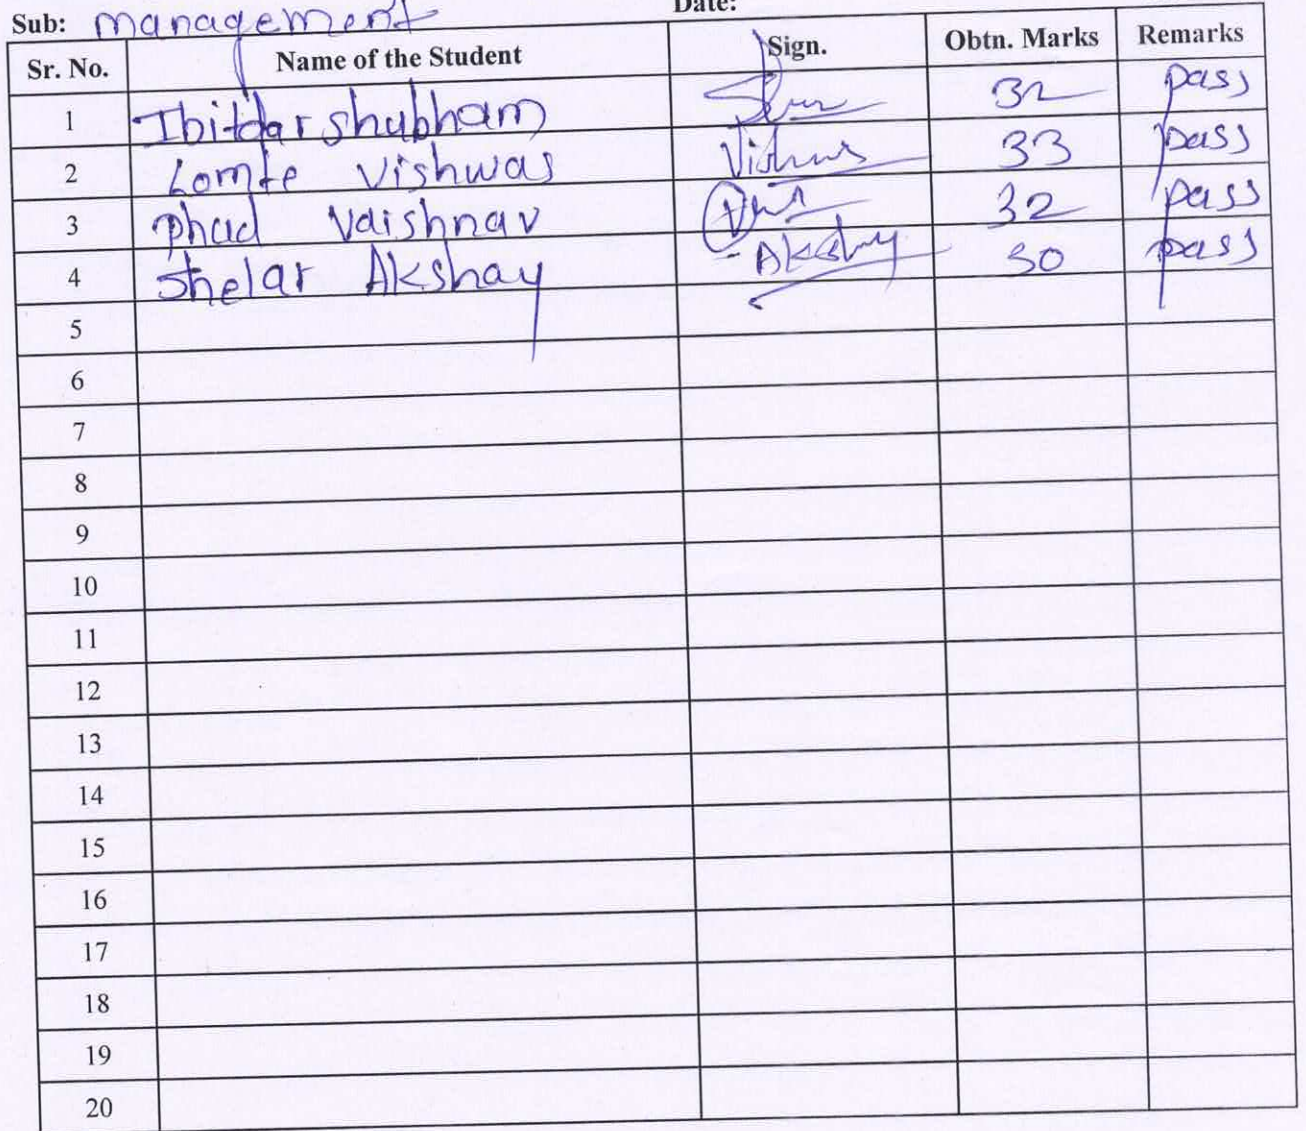 Sub: management Date:
Sr. No. Name of the Student Sign. Obtn. Marks Remarks
1 Ibitdar shubham 32 pass
2 Lomte Vishwas Vishwas 33 pass
3 phad Vaishnav 32 pass
4 Shelar Akshay Akshay 30 pass
5
6
7
8
9
10
11
12
13
14
15
16
17
18
19
20